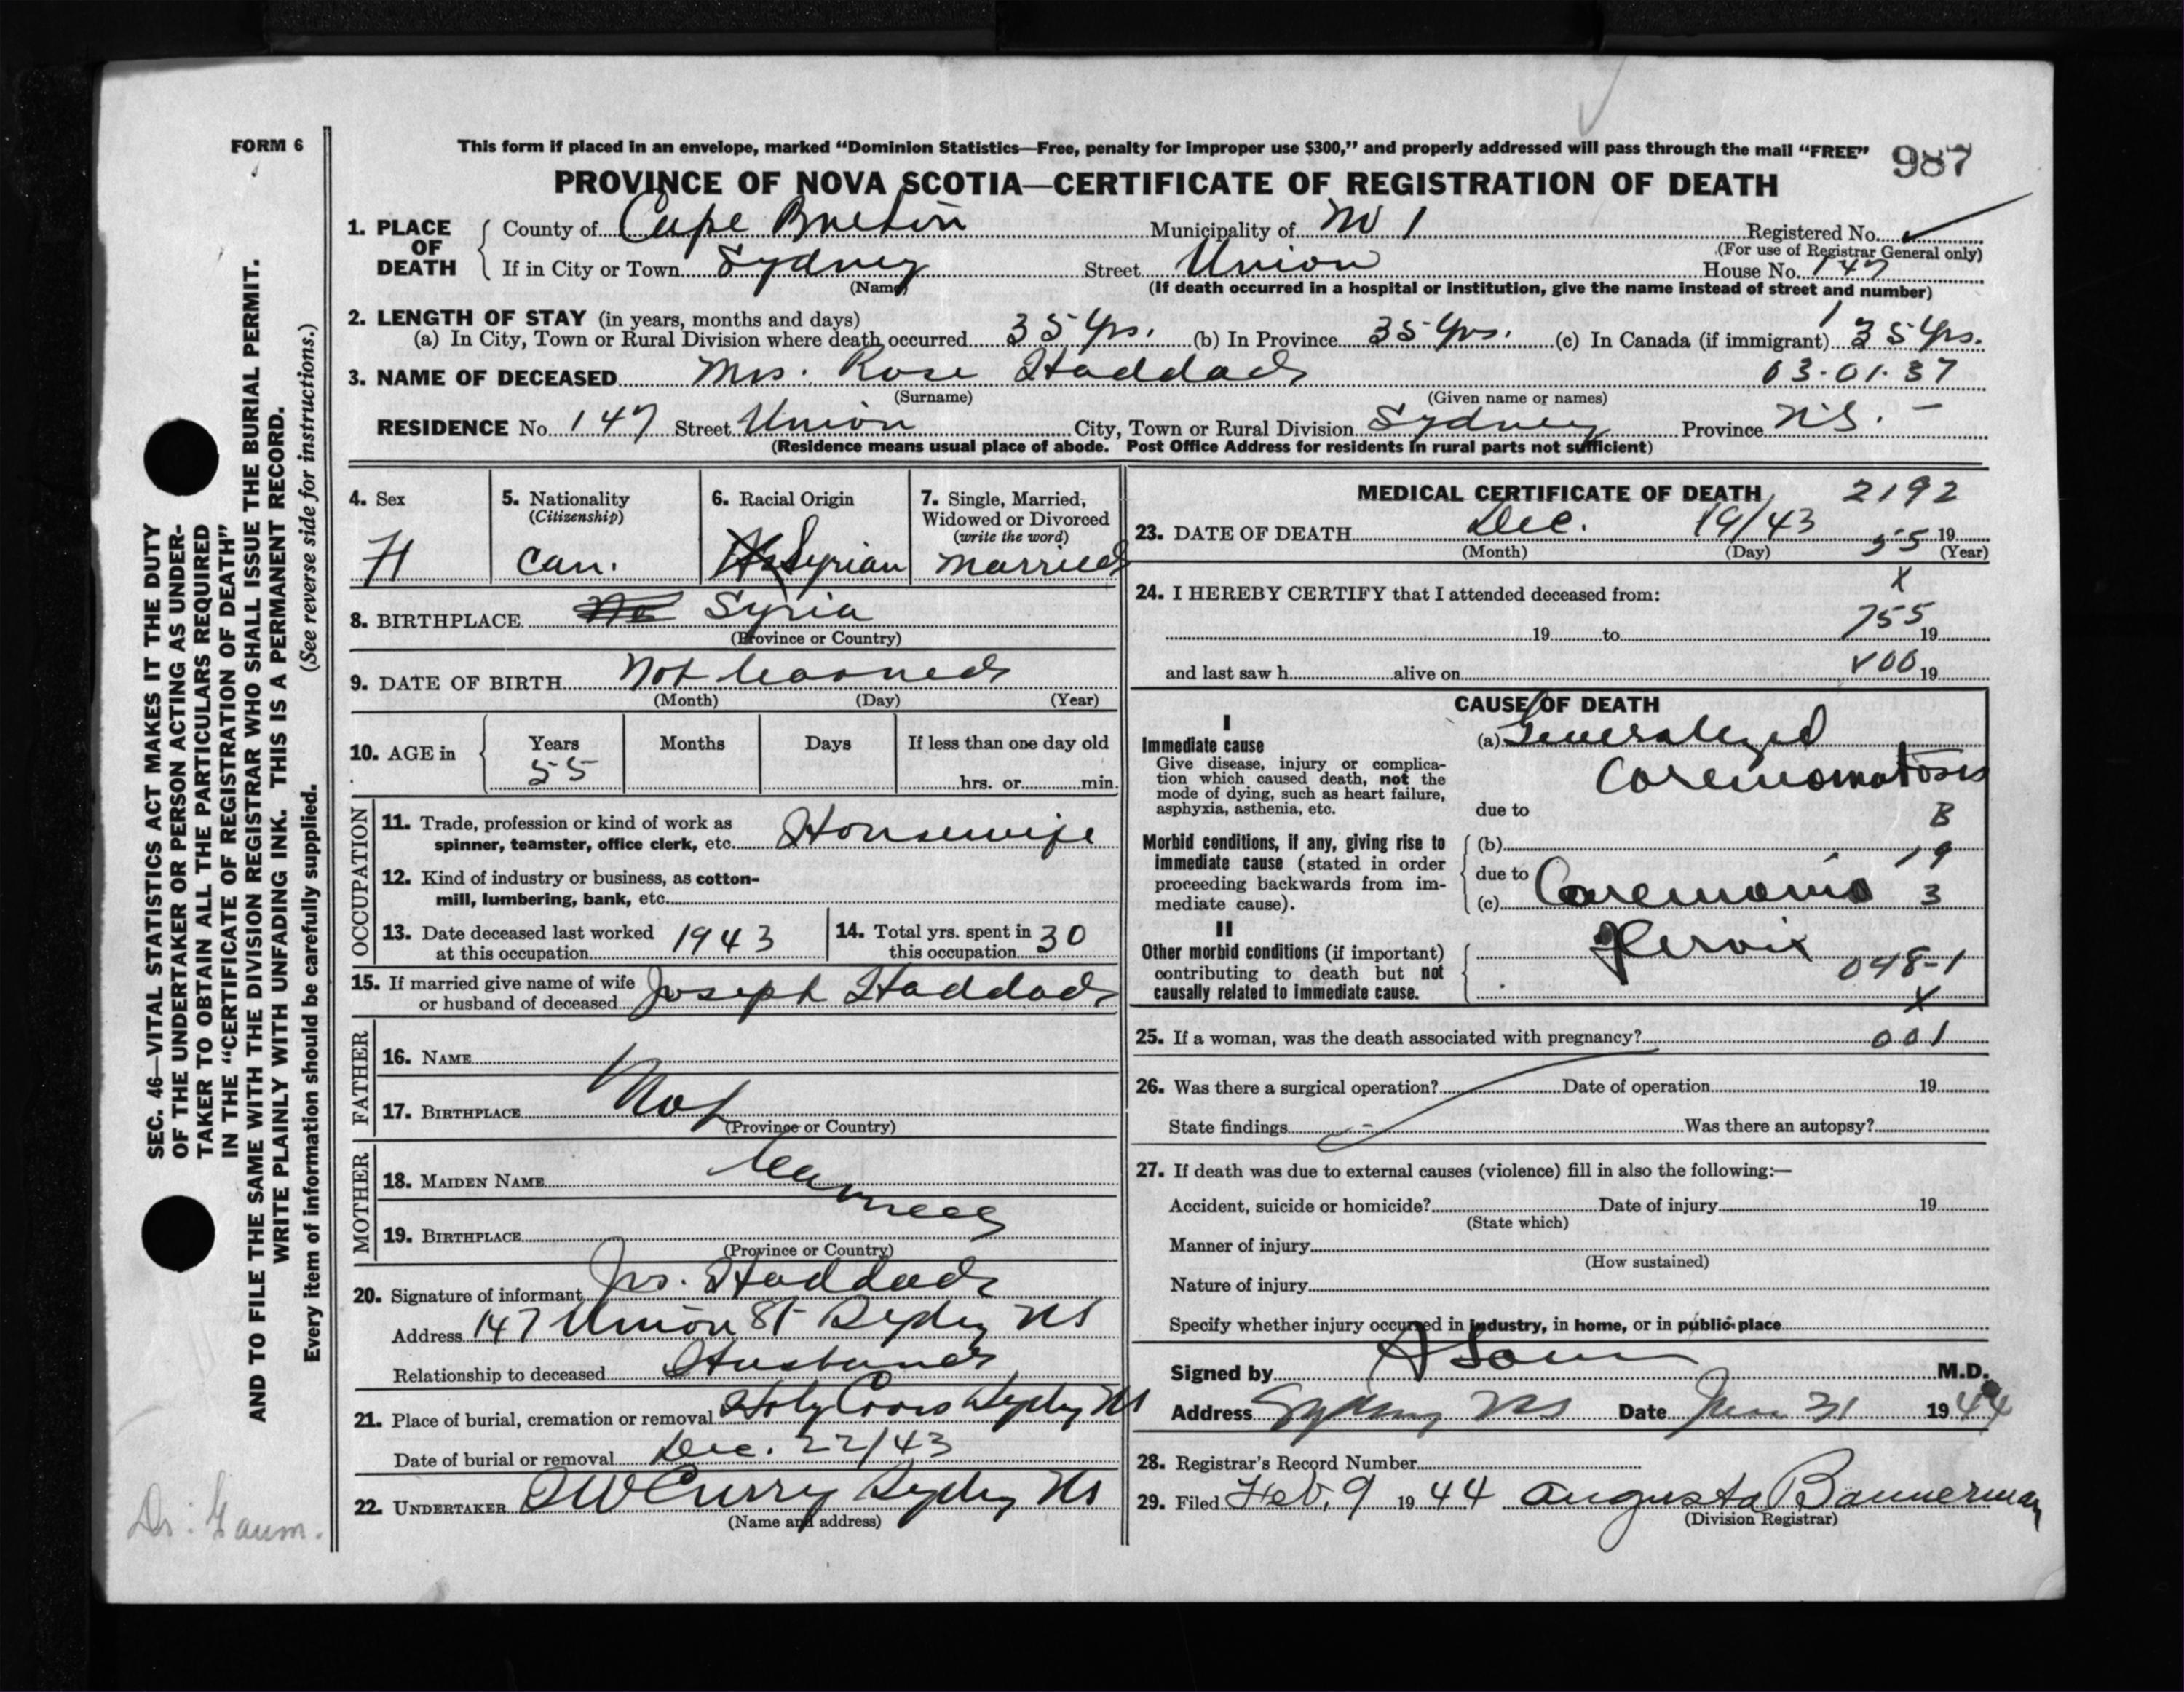 FORM 6
This form if placed in an envelope, marked “Dominion Statistics—Free, penalty for improper use $300,” and properly addressed will pass through the mail “FREE”
987
PROVINCE OF NOVA SCOTIA—CERTIFICATE OF REGISTRATION OF DEATH
1. PLACE OF DEATH
County of Cape Breton Municipality of No 1 Registered No.
(For use of Registrar General only)
If in City or Town Sydney Street Union House No. 147
(Name) (If death occurred in a hospital or institution, give the name instead of street and number)
2. LENGTH OF STAY (in years, months and days)
(a) In City, Town or Rural Division where death occurred 35 Yrs. (b) In Province 35 Yrs. (c) In Canada (if immigrant) 35 Yrs.
3. NAME OF DECEASED Mrs. Rose Haddad 03-01-37
(Surname) (Given name or names)
RESIDENCE No. 147 Street Union City, Town or Rural Division Sydney Province N.S. –
(Residence means usual place of abode. Post Office Address for residents in rural parts not sufficient)
4. Sex
F
5. Nationality
(Citizenship)
Can.
6. Racial Origin
Syrian
7. Single, Married,
Widowed or Divorced
(write the word)
Married
8. BIRTHPLACE Syria
(Province or Country)
9. DATE OF BIRTH Not learned
(Month) (Day) (Year)
10. AGE in
Years Months Days If less than one day old
55
hrs. or min.
OCCUPATION
11. Trade, profession or kind of work as
spinner, teamster, office clerk, etc. Housewife
12. Kind of industry or business, as cotton-
mill, lumbering, bank, etc.
13. Date deceased last worked
at this occupation 1943
14. Total yrs. spent in
this occupation 30
15. If married give name of wife
or husband of deceased Joseph Haddad
FATHER
16. NAME
17. BIRTHPLACE Not
(Province or Country)
MOTHER
18. MAIDEN NAME learned
19. BIRTHPLACE
(Province or Country)
20. Signature of informant Jos. Haddad
Address 147 Union St Sydney NS
Relationship to deceased Husband
21. Place of burial, cremation or removal Holy Cross Sydney NS
Date of burial or removal Dec. 22/43
22. UNDERTAKER W Curry Sydney NS
(Name and address)
MEDICAL CERTIFICATE OF DEATH 2192
23. DATE OF DEATH Dec. 19/43 19
(Month) (Day) (Year)
55
24. I HEREBY CERTIFY that I attended deceased from:
X
19 to 755 19
and last saw h alive on 19
CAUSE OF DEATH
I
Immediate cause
Give disease, injury or complica-
tion which caused death, not the
mode of dying, such as heart failure,
asphyxia, asthenia, etc.
(a) Generalized
Carcinomatosis
due to
B
Morbid conditions, if any, giving rise to
immediate cause (stated in order
proceeding backwards from im-
mediate cause).
(b) 19
due to
(c) Carcinoma 3
II
Other morbid conditions (if important)
contributing to death but not
causally related to immediate cause.
Cervix
048-1
X
25. If a woman, was the death associated with pregnancy? 001
26. Was there a surgical operation? Date of operation 19
State findings Was there an autopsy?
27. If death was due to external causes (violence) fill in also the following:—
Accident, suicide or homicide? Date of injury 19
(State which)
Manner of injury
(How sustained)
Nature of injury
Specify whether injury occurred in industry, in home, or in public place
Signed by M.D.
Address Sydney NS Date Jan 31 1944
28. Registrar's Record Number
29. Filed Feb. 9 1944 Augusta Bannerman
(Division Registrar)
SEC. 46—VITAL STATISTICS ACT MAKES IT THE DUTY
OF THE UNDERTAKER OR PERSON ACTING AS UNDER-
TAKER TO OBTAIN ALL THE PARTICULARS REQUIRED
IN THE “CERTIFICATE OF REGISTRATION OF DEATH”
AND TO FILE THE SAME WITH THE DIVISION REGISTRAR WHO SHALL ISSUE THE BURIAL PERMIT.
WRITE PLAINLY WITH UNFADING INK. THIS IS A PERMANENT RECORD.
Every item of information should be carefully supplied. (See reverse side for instructions.)
Dr. Gaum.